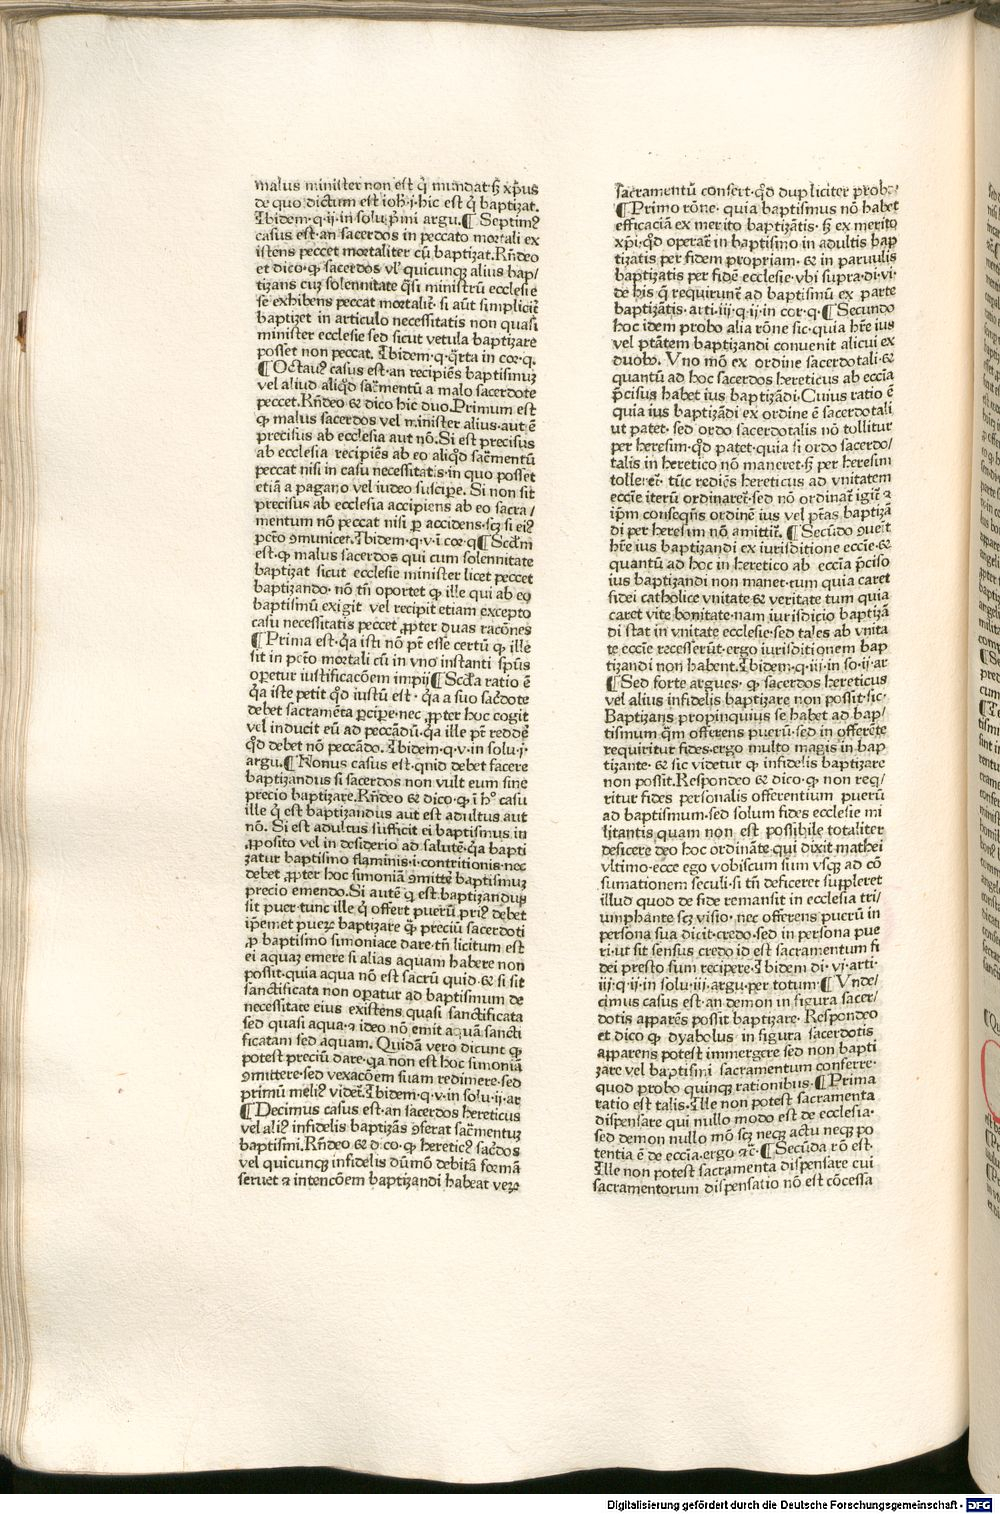 malus minister non est q̇ mundat·sꝫ xp̄us
de quo dictum est ioh̄·j·hic est q̇ baptizat.
Ibidem·q·ij·in solu·p̄mi argu.¶ Septim⁹
casus est·an sacerdos in peccato mortali ex
istens peccet mortaliter cū baptizat.Rn̄deo
et dico·ꝙ sacerdos vl̛ quicunqꝫ alius bap/
tizans cuꝫ solennitate q̄si ministrū ecclesie
se exhibens peccat mortalit̛· si aūt simplicit̛
baptizet in articulo necessitatis non quasi
minister ecclesie sed sicut vetula baptizare
posset non peccat. Ibidem·q·q̄rta in cor·q.
¶ Octau⁹ casus est·an recipiēs baptismuꝫ
vel aliud aliq̇d sac̄mentū a malo sacerdote
peccet.Rn̄deo & dico hic duo.Primum est
ꝙ malus sacerdos vel minister alius·aut ē
precisus ab ecclesia aut nō.Si est precisus
ab ecclesia recipiēs ab eo aliq̇d sac̄mentū
peccat nisi in casu necessitatis·in quo posset
etiā a pagano vel iudeo suscipe. Si non sit
precisus ab ecclesia accipiens ab eo sacra/
mentum nō peccat nisi ꝑ accidens·scꝫ si ei⁹
pctō ꝯmunicet.Ibidem·q·v·ī cor·q¶ Scd̄m
est·ꝙ malus sacerdos qui cum solennitate
baptizat sicut ecclesie minister licet peccet
baptizando· nō tn̄ oportet ꝙ ille qui ab eo
baptismū exigit vel recipit etiam excepto
casu necessitatis peccet ꝓpter duas racōnes
¶ Prima est·q̇a isti nō pt̄ esse certū ꝙ ille
sit in pctō mortali cū in vno instanti sp̄us
oꝑetur iustificacōem impij¶ Scd̄a ratio ē
q̇a iste petit q̇d iustū est · q̇a a suo sac̄dote
debet sacramēta ꝑcipe·nec ꝓpter hoc cogit
vel inducit eū ad peccādū·q̇a ille pt̄ redde
q̇d debet nō peccādo. Ibidem·q·v·in solu·j·
argu.¶ Nonus casus est·quid debet facere
baptizandus si sacerdos non vult eum sine
precio baptizare.Rn̄deo & dico·ꝙ ī hº casu
ille q̇ est baptizandus aut est adultus aut
nō. Si est adultus sufficit ei baptismus in
ꝓposito vel in desiderio ad salutē·q̇a bapti
zatur baptismo flaminis·i·contritionis·nec
debet ꝓpter hoc simoniā ꝯmitte baptismuꝫ
precio emendo.Si autē q̇ est baptizandus
sit puer·tunc ille q̇ offert puerū pri⁹ debet
ip̄emet pueꝝ baptizare q̄ꝫ preciū sacerdoti
ꝓ baptismo simoniace dare·tn̄ licitum est
ei aquaꝫ emere si alias aquam habere non
possit·quia aqua nō est sacrū quid·& si sit
sanctificata non oꝑatur ad baptismum de
necessitate eius existens quasi sanctificata
sed quasi aqua·⁊ ideo nō emit aquā sancti
ficatam sed aquam. Quidā vero dicunt ꝙ
potest preciū dare·q̇a non est hoc simoniā
ꝯmittere·sed vexacōem suam redimere·sed
primū meli⁹ videt̄.Ibidem·q·v·in solu·ij·ar
¶ Decimus casus est·an sacerdos hereticus
vel ali⁹ infidelis baptizās ꝯferat sac̄mentuꝫ
baptismi.Rn̄deo & dico·ꝙ heretic⁹ sac̄dos
vel quicunqꝫ infidelis dūmō debitā formā
seruet ⁊ intencōem baptizandi habeat veꝝ
sacramentū confert·q̇d dupliciter prob·
¶ Primo rōne· quia baptismus nō habet
efficaciā ex merito baptizātis· sꝫ ex merito
xp̄i·q̇d operat̄ in baptismo in adultis bap
tizatis per fidem propriam· & in paruulis
baptizatis per fidē ecclesie·vbi supra·di·vi·
de his q̄ requirunt̄ ad baptismū ex parte
baptizātis·arti·iij·q·ij·in cor·q·¶ Secundo
hoc idem probo alia rōne sic·quia hr̄e ius
vel ptātem baptizandi conuenit alicui ex
duobꝫ. Vno mō ex ordine sacerdotali·&
quantū ad hoc sacerdos hereticus ab eccīa
p̄cisus habet ius baptizādi·Cuius ratio ē
quia ius baptizādi ex ordine ē sacerdotali
ut patet· sed ordo sacerdotalis nō tollitur
per heresim·q̇d patet·quia si ordo sacerdo/
talis in heretico nō maneret·sꝫ per heresim
tolleret̄· tūc rediēs hereticus ad vnitatem
eccīe iterū ordinaret̄·sed nō ordinat̄ igit̄ ⁊
ip̄m conseqn̄s ordinē ius vel ptās baptizā
di per heresim nō amittit̄. ¶ Secūdo ꝯueīt
hr̄e ius baptizandi ex iurisditione eccīe·&
quantū ad hoc in heretico ab eccīa p̄ciso
ius baptizandi non manet·tum quia caret
fidei catholice vnitate & veritate tum quia
caret vite bonitate·nam iurisdicio baptizā
di stat in vnitate ecclesie·sed tales ab vnita
te eccīe recesserūt·ergo iurisditionem bap
tizandi non habent.Ibidem·q·iij·in so·ij·ar
¶ Sed forte argues· ꝙ sacerdos hereticus
vel alius infidelis baptizare non possit·sic·
Baptizans propinquius se habet ad bap/
tismum q̄m offerens puerū·sed in offerēte
requiritur fides·ergo multo magis in bap
tizante· & sic videtur ꝙ infidelis baptizare
non possit.Respondeo & dico·ꝙ non req̇/
ritur fides personalis offerentium puerū
ad baptismum·sed solum fides ecclesie mi
litantis quam non est possibile totaliter
deficere deo hoc ordināte·qui dixit mathei
vltimo·ecce ego vobiscum sum vsqꝫ ad cō
sumationem seculi·si tn̄ deficeret suppleret
illud quod de fide remansit in ecclesia tri/
umphante scꝫ visio· nec offerens puerū in
persona sua dicit·credo·sed in persona pue
ri·ut sit sensus credo id est sacramentum fi
dei presto sum recipere·Ibidem di·vj·arti·
iij·q·ij·in solu·iij·argu·per totum·¶ Vnde/
cimus casus est·an demon in figura sacer/
dotis apparēs possit baptizare· Respondeo
et dico ꝙ dyabolus in figura sacerdotis
apparens potest immergere sed non bapti
zare vel baptismi sacramentum conferre·
quod probo quinqꝫ rationibus·¶ Prima
ratio est talis·Ille non potest sacramenta
dispensare qui nullo modo est de ecclesia·
sed demon nullo mō scꝫ neqꝫ actu neqꝫ po
tentia ē de eccīa·ergo ⁊c̄·¶ Secūda rō est·
Ille non potest sacramenta dispensare cui
sacramentorum dispensatio nō est cōcessa
Digitalisierung gefördert durch die Deutsche Forschungsgemeinschaft · DFG